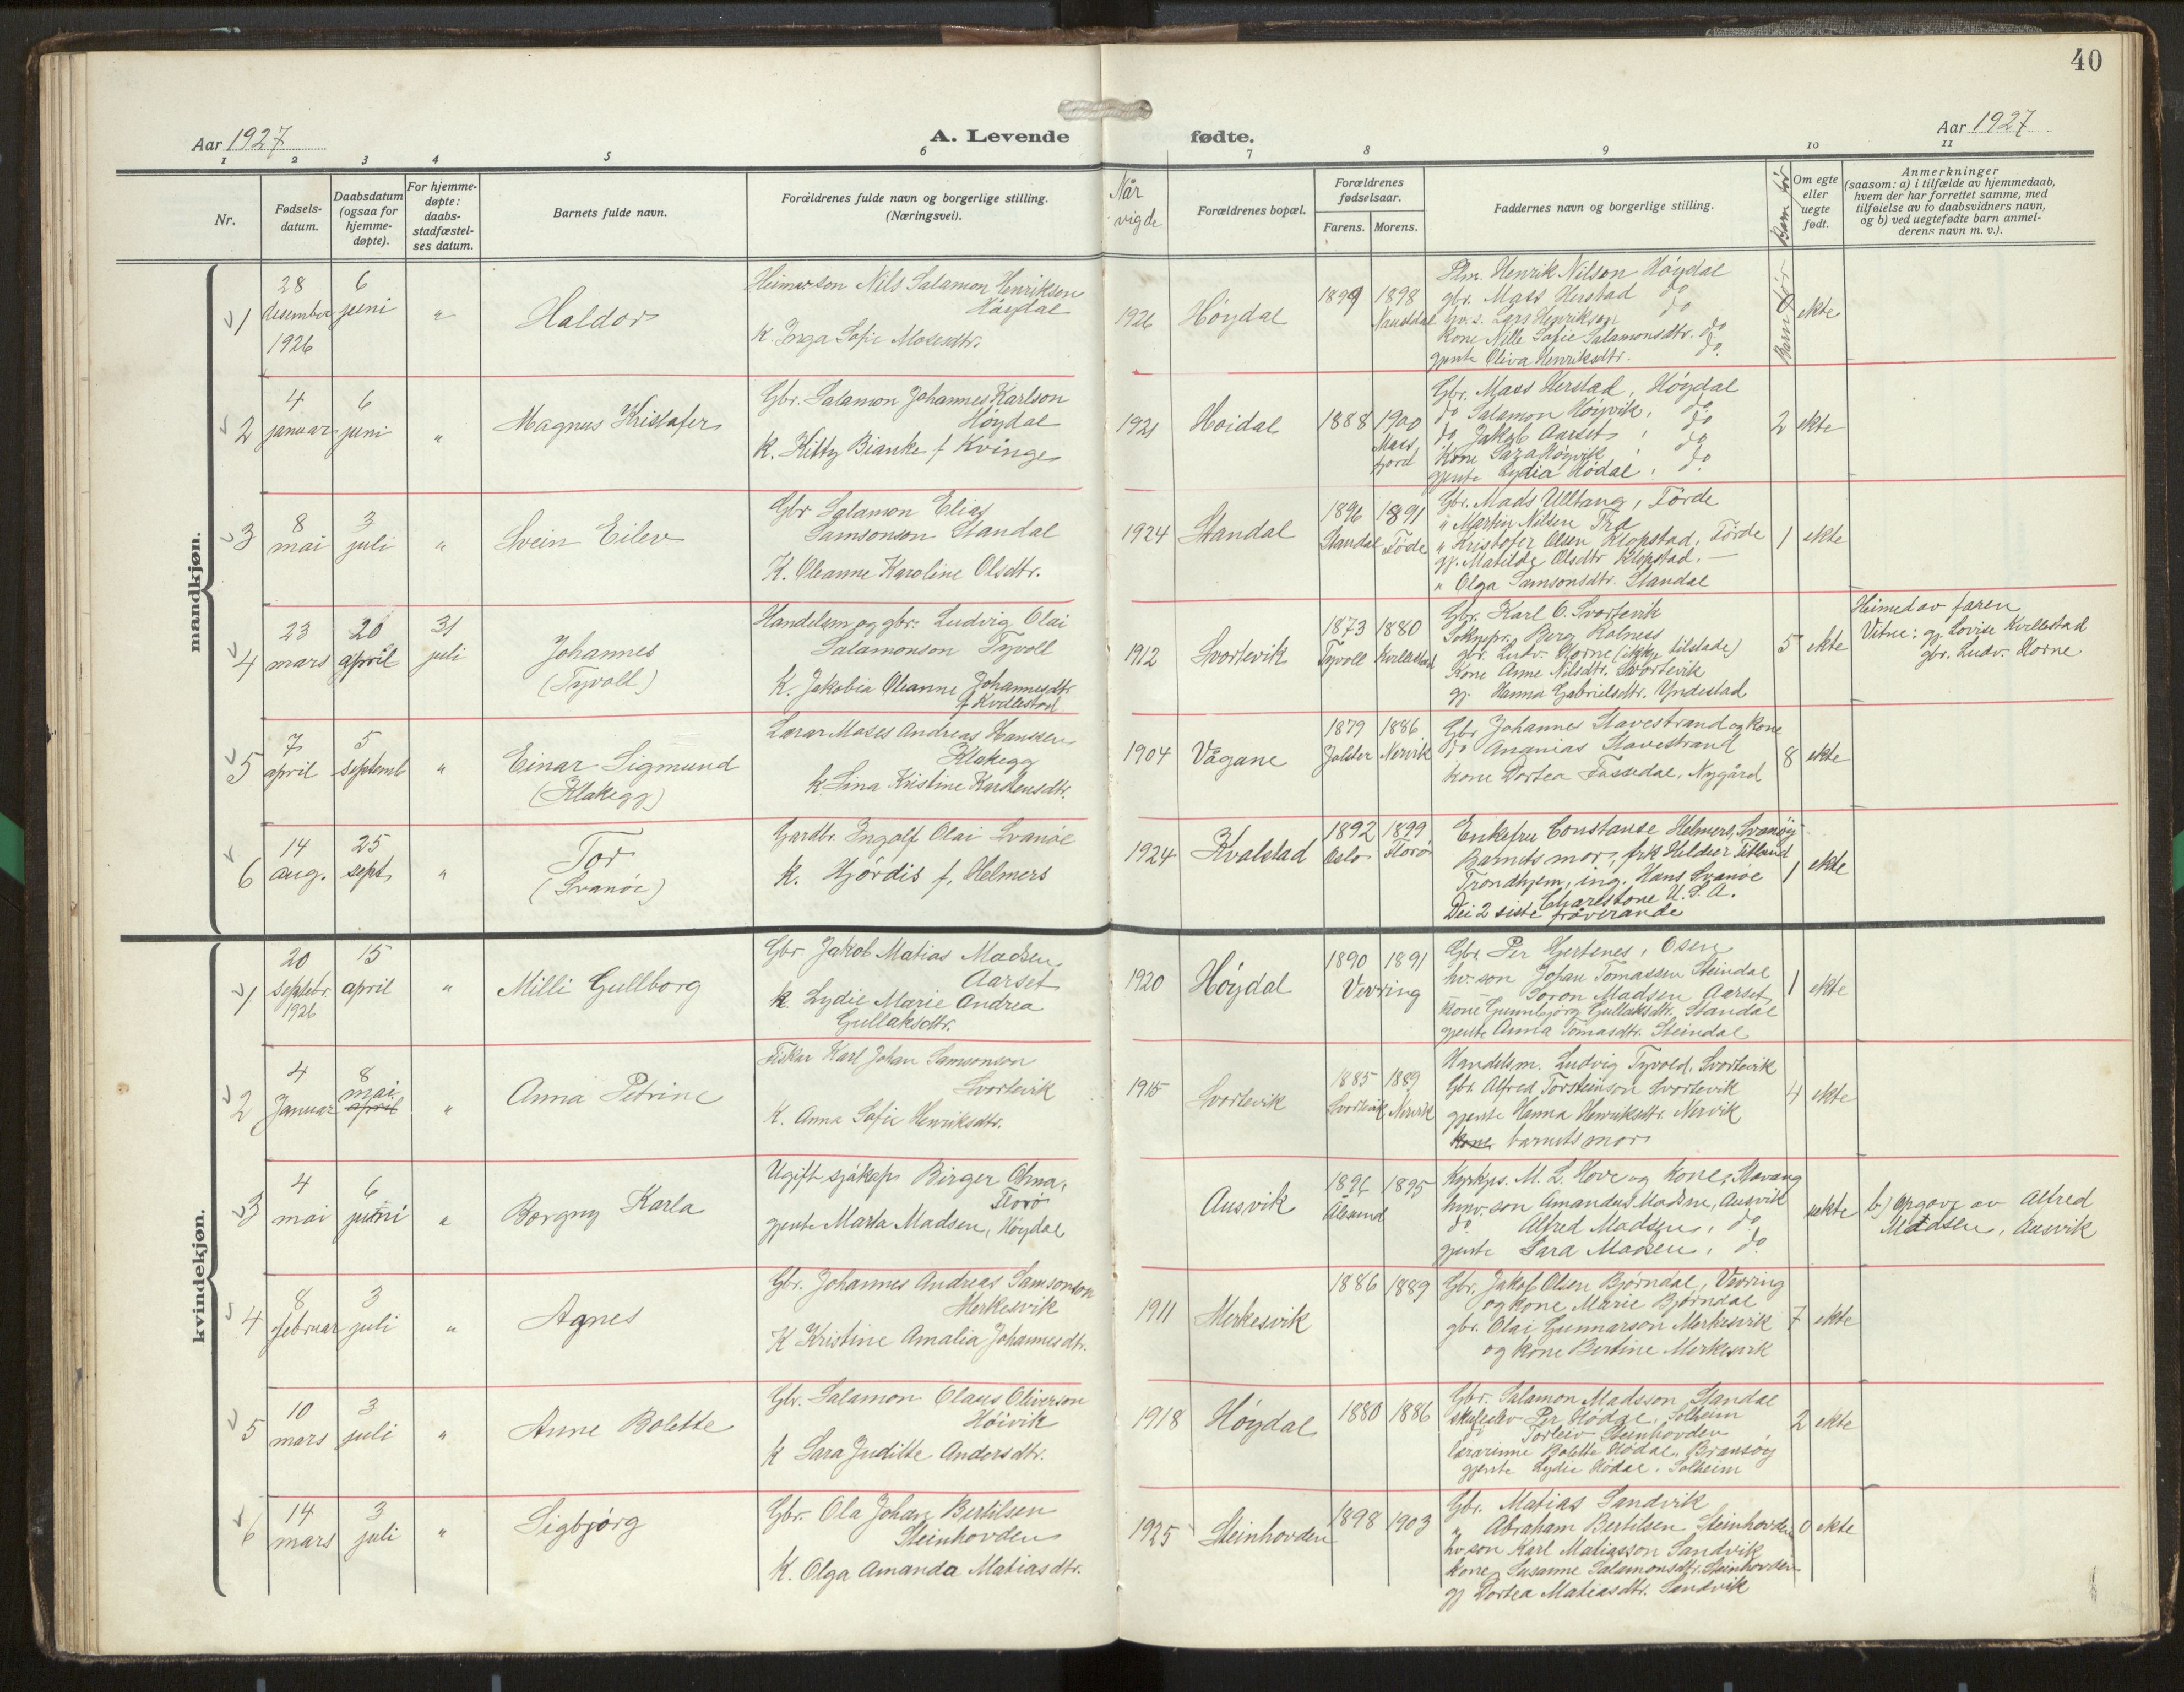 40
Aar 1927
A. Levende fødte.
Aar 1927
1 2 3 4 5 6 7 8 9 10 11
Nr.
Fødselsdatum.
Daabsdatum (ogsaa for hjemmedøpte).
For hjemmedøpte: daabsstadfæstelses datum.
Barnets fulde navn.
Forældrenes fulde navn og borgerlige stilling. (Næringsvei).
Når vigde
Forældrenes bopæl.
Forældrenes fødselsaar.
Farens. Morens.
Faddernes navn og borgerlige stilling.
Barn før
Om egte eller uegte født.
Anmerkninger
(saasom: a) i tilfælde av hjemmedaab,
hvem der har forrettet samme, med
tilføielse av to daabsvidners navn,
og b) ved uegtefødte barn anmel-
derens navn m. v.).
mandkjøn.
1 28 desember 1926
6 juni
"
Haldor
Heimarson Nils Salamon Henrikson
Høydal
K. Inga Sofie Mosesdtr.
1926 Høydal 1899 1898
Naustdal
Flm. Henrik Nilson Høydal
gbr. Mass Herstad do
hv. s. Lars Henrikson do
Kone Nille Sofie Salamonsdtr. do
gjente Oliva Henriksdtr. do.
Barn før 0
ekte
2 4 januar
6 juni
"
Magnus Kristofer
Gbr. Salamon Johannes Karlson
Høydal
K. Kitty Bianke f Kvinge
1921 Hoidal 1888 1900
Masfjord
Gbr. Mass Herstad, Høydal
do Salamon Høyvik, do
do Jakob Aarset, do
Kone Sara Høyvik, do
gjente Lydia Hødal, do.
2 ekte
3 8 mai
3 juli
"
Svein Eilev
Gbr Salamon Elias
Samsonson Standal
K. Oleanne Karoline Olsdtr.
1924 Standal 1896 1891
Standal Førde
Gbr. Mads Ulltang, Førde
" Martin Nilsen Tra
" Kristofer Olsen Klopstad, Førde
gj. Matilde Olsdtr Klopstad. —
" Olga Samsonsdtr. Standal
1 ekte
4 23 mars
20 april
31 juli
Johannes
(Tyvoll)
Handelsm og gbr. Ludvig Olai
Salamonson Tyvoll
K. Jakobia Oleanne Johannesdtr
f Kvellestad
1912 Svortevik 1873 1880
Tyvoll Kvellestad
Gbr. Karl O. Svortevik
Soknpr. Berg Kolness
gbr. Ludv. Horne (ikkje tilstade)
Kone Anne Nilsdtr. Svortevik
gj. Hanna Gabrielsdtr. Yndestad
5 ekte
Heimed av faren
Vitne: gj. Lovise Kvellestad
gbr. Ludv. Horne
5 7 april
5 septemb
"
Einar Sigmund
(Klakegg)
Lærar Moses Andreas Hanssen
Klakegg
k Lina Kristine Karstensdtr.
1904 Vågane 1879 1886
Jølster Nervik
Gbr Johannes Stavestrand og kone
do Anganias Stavestrand
kone Dortea Fassedal, Nygård
8 ekte
6 14 aug.
25 sept
"
Tor
(Svanøe)
Gardbr. Ingolf Olai Svanøe
K. Hjørdis f. Helmers
1924 Kvalstad 1892 1899
Oslo Florø
Enkefru Constanse Helmers, Svanøy
Barnets mor, frk Heldur Titland
Trondhjem, ing. Hans Svanøe
Charlstone U. S. A.
Dei 2 siste fråverande
1 ekte
kvindekjøn.
1 20 septebr. 1926
15 april
"
Milli Gullborg
Gbr. Jakob Matias Madsen
Aarset
k. Lydie Marie Andrea
Gullaksdtr.
1920 Høydal 1890 1891
Vevring
Gbr. Per Gjertenes, Osen
hv. son Johan Tomassen Steindal
Soron Madsen Aarset
kone Gunnbjørg Gullaksdtr. Standal
gjente Anna Tomasdtr. Steindal
1 ekte
2 4 Januar
8 mai
april
"
Anna Petrine
Fiskar Karl Johan Samsonson
Svortevik
K. Anna Sofie Henriksdtr.
1915 Svortevik 1885 1889
Svortevik Nervik
Handelsm. Ludvig Tyvold, Svortevik
Gbr. Alfred Torsteinson Svortevik
gjente Hanna Henriksdtr. Nervik
kone barnets mor
4 ekte
3 4 mai
6 juni
"
Borgny Karla
Ugift sjåkap Birger Ohna,
Florø
gjente Marta Madsen, Høydal
Ausvik 1896 1895
Ålesund
Kyrkjs. M. L. Hove og kone, Stavang
hmv. son Amandus Madsen, Ausvik
do. Alfred Madsen, do
gjente Sara Madsen, do.
uekte
b) opgave av Alfred
Madsen, Ausvik
4 8 februar
3 juli
"
Agnes
Gbr. Johannes Andreas Samsonson
Merkesvik
K Kristine Amalia Johannesdtr.
1911 Merkesvik 1886 1889
Gbr. Jakob Olsen Bjørndal, Vevring
og kone Marie Bjørndal
gbr. Olai Gunnarson Merkesvik
og kone Bertine Merkesvik
7 ekte
5 10 mars
3 juli
"
Anne Bolette
Gbr. Salamon Olaus Oliverson
Høivik
k Sara Juditte Andersdtr.
1918 Høydal 1880 1886
Gbr. Salamon Madsson Standal
skuleelev Per Hødal, Solheim
do Torleiv Steinhovden
lærarinne Bolette Hødal, Bransøy
gjente Lydie Hødal, Solheim
2 ekte
6 14 mars
3 juli
"
Sigbjørg
Gbr. Ola Johan Bertilsen
Steinhovden
K. Olga Amanda Matiasdtr.
1925 Steinhovden 1898 1903
Gbr. Matias Sandvik
" Abraham Bertilsen Steinhovden
hv son Karl Matiasson Sandvik
kone Susanne Salamonsdtr. Steinhovden
gj Dortea Matiasdtr. Sandvik
0 ekte